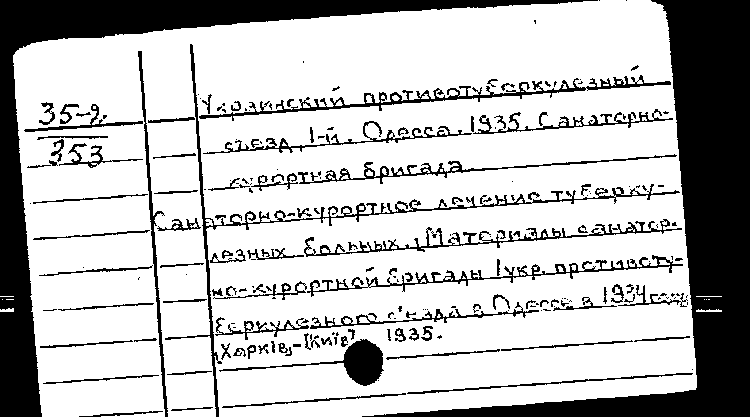 35-2
353
Украинский противотуберкулезный
съезд, 1-й. Одесса. 1935. Санаторно-
курортная бригада
Санаторно-курортное лечение туберку-
лезных больных. [Материалы санатор-
но-курортной бригады 1 укр. противоту-
беркулезного с'езда в Одессе в 1934 году
[Харків]-[Київ] 1935.